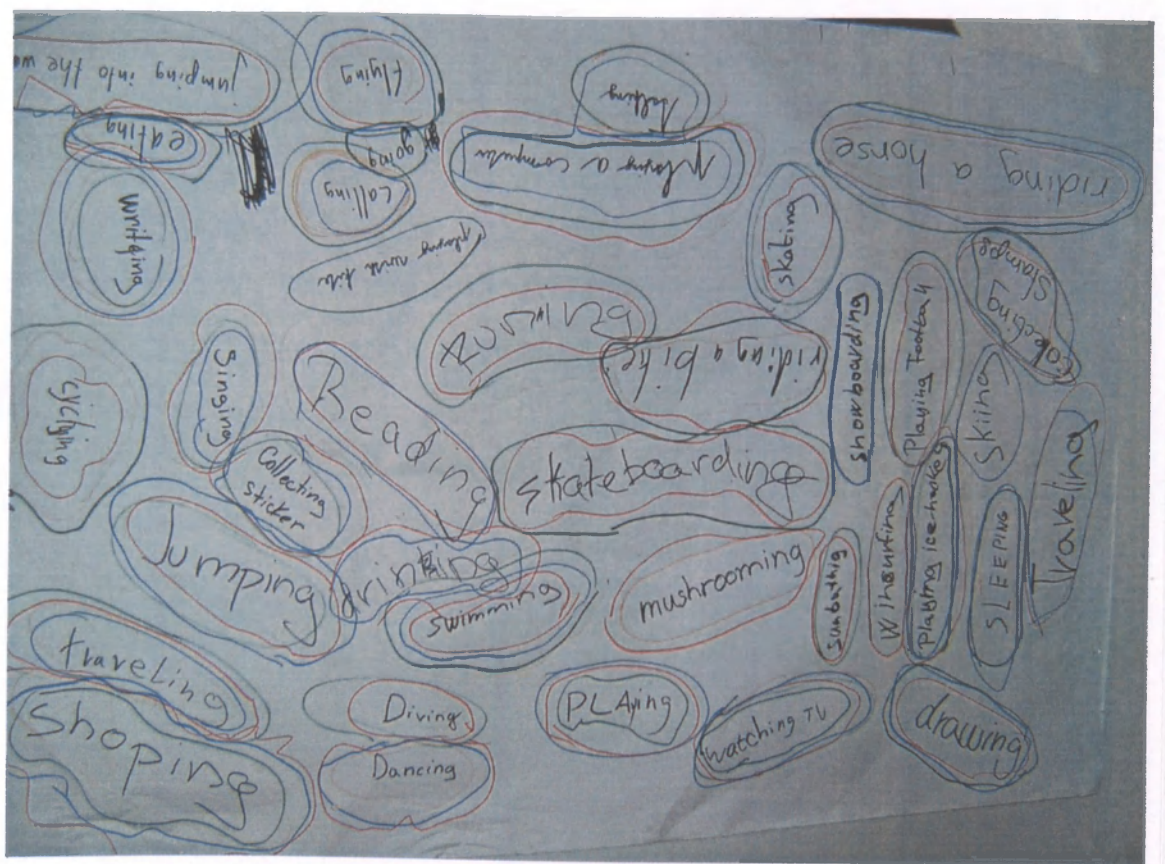 jumping into the wa
flying
talking
eating
going
playing a computer
riding a horse
writging
calling
skating
playing with
colecting
stamps
Running
riding a bike
showboarding
Playing Football
Skiing
cyclging
Singing
Reading
Collecting
sticker
skateboarding
Traveling
Jumping
drinking
swimming
mushrooming
sunbathig
Playing ice-hockey
SLEEPING
traveling
Shoping
Diving
Dancing
PLAying
watching TV
drawing